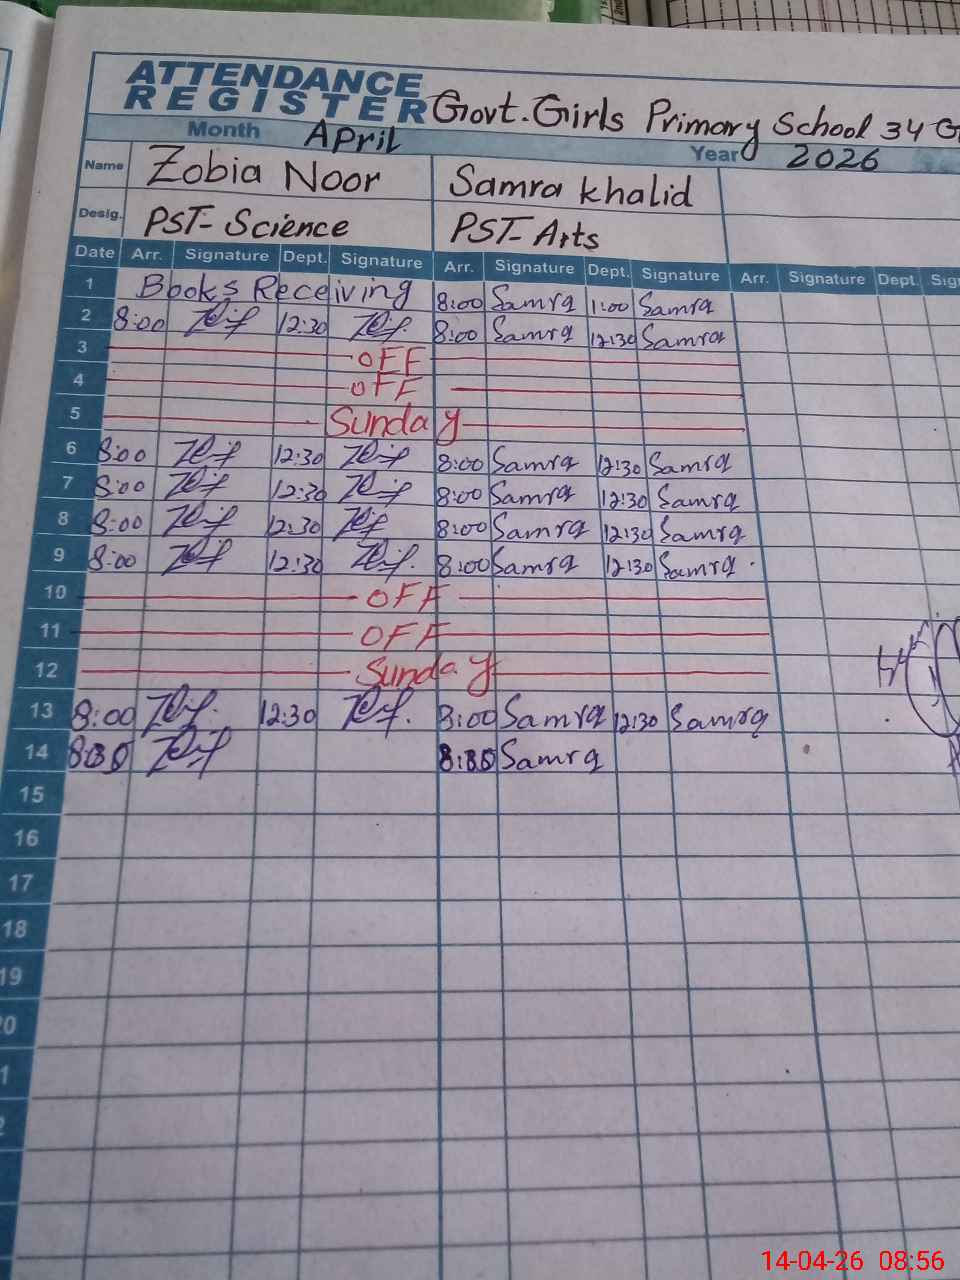 ATTENDANCE
REGISTER Govt. Girls Primary School 34 G
Month April Year 2026
Name Zobia Noor Samra Khalid
Desig. PST- Science PST- Arts
Date Arr. Signature Dept. Signature Arr. Signature Dept. Signature Arr. Signature Dept. Sig
1 Books Receiving 8:00 Samra 1:00 Samra
2 8:00 12:30 8:00 Samra 12:30 Samra
3 OFF
4 OFF
5 Sunday
6 8:00 12:30 8:00 Samra 12:30 Samra
7 8:00 12:30 8:00 Samra 12:30 Samra
8 8:00 12:30 8:00 Samra 12:30 Samra
9 8:00 12:30 8:00 Samra 12:30 Samra
10 OFF
11 OFF
12 Sunday
13 8:00 12:30 8:00 Samra 12:30 Samra
14 Samra
15
16
17
18
19
14-04-26 08:56